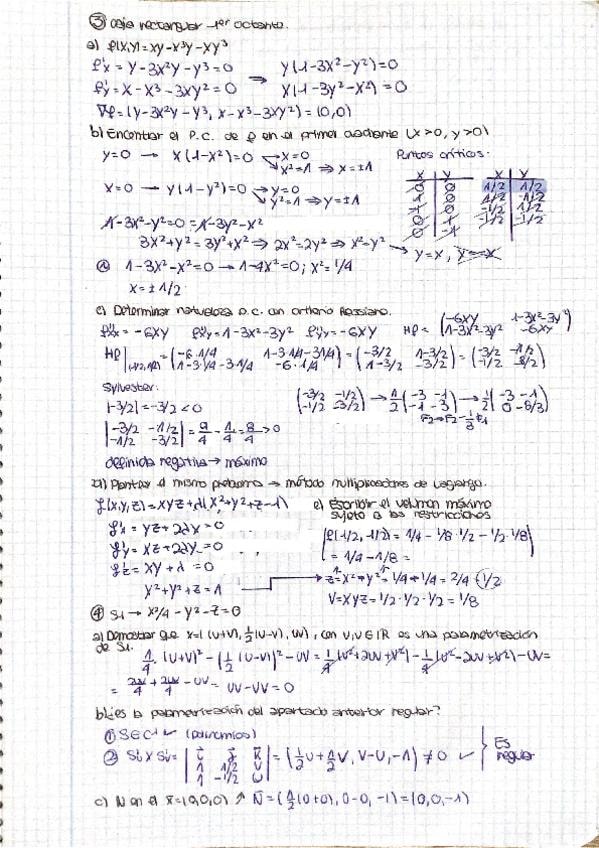 ③ Caja rectangular 1er octante.
a) f(x,y)=xy-x³y-xy³
f'x = y-3x²y-y³=0 ⇒ y(1-3x²-y²)=0
f'y = x-x³-3xy²=0 x(1-3y²-x²)=0
∇f=(y-3x²y-y³, x-x³-3xy²)=(0,0)
b) Encontrar el P.C. de f en el primer cuadrante (x>0, y>0)
y=0 → x(1-x²)=0 x=0
x²=1 ⇒ x=±1
x=0 → y(1-y²)=0 y=0
y²=1 ⇒ y=±1
Puntos críticos:
x y x y
0 0 1/2 1/2
1/2 -1/2
-1/2 1/2
-1/2 -1/2
1-3x²-y²=0 = 1-3y²-x²
3x²+y²=3y²+x² ⇒ 2x²=2y² ⇒ x²=y² → y=x, y=-x
① 1-3x²-x²=0 → 1-4x²=0; x²=1/4
x=±1/2
c) Determinar naturaleza P.C. con criterio Hessiano.
f''xx = -6xy f''xy=1-3x²-3y² f''yy=-6xy Hf = (-6xy 1-3x²-3y²
1-3x²-3y² -6xy)
Hf|(1/2,1/2) = (-6·1/4 1-3·1/4-3·1/4) = (-3/2 1-3/2) = (-3/2 -1/2)
(1-3·1/4-3·1/4 -6·1/4) (1-3/2 -3/2) (-1/2 -3/2)
Sylvester:
|-3/2|=-3/2<0
|-3/2 -1/2| = 9/4 - 1/4 = 8/4 >0
|-1/2 -3/2|
(-3/2 -1/2) → 1/2(-3 -1) → 1/2(-3 -1)
(-1/2 -3/2) (-1 -3) (0 -8/3)
F2→F2-1/3F1
definida negativa → máximo
d) Plantear el mismo problema → método multiplicadores de Lagrange.
L(x,y,z)=xyz+λ(x²+y²+z-1)
L'x = yz+2λx=0
L'y = xz+2λy=0
L'z = xy+λ=0
x²+y²+z=1
e) Escribir el volumen máximo
sujeto a las restricciones
f(1/2,1/2) = 1/4 - 1/8·1/2 - 1/2·1/8
= 1/4-1/8=
1/4+1/4 = 2/4 1/2
V=xyz=1/2·1/2·1/2=1/8
④ S1 → x²/4-y²-z=0
a) Demostrar que x=(u+v, 1/2(u-v), uv), con u,v∈ℝ es una parametrización
de S1.
1/4·(u+v)²-(1/2(u-v))²-uv = 1/4(u²+2uv+v²)-1/4(u²-2uv+v²)-uv=
= 2uv/4 + 2uv/4 - uv= uv-uv=0
b) ¿es la parametrización del apartado anterior regular?
① S ∈ C¹ ✓ (polinomios)
② S'u × S'v = |i j k| = (1/2u+1/2v, v-u, -1) ≠ 0 ✓
|1 1/2 v|
|1 -1/2 u|
Es
regular
c) N en el x=(0,0,0) N=(1/2(0+0), 0-0, -1)=(0,0,-1)